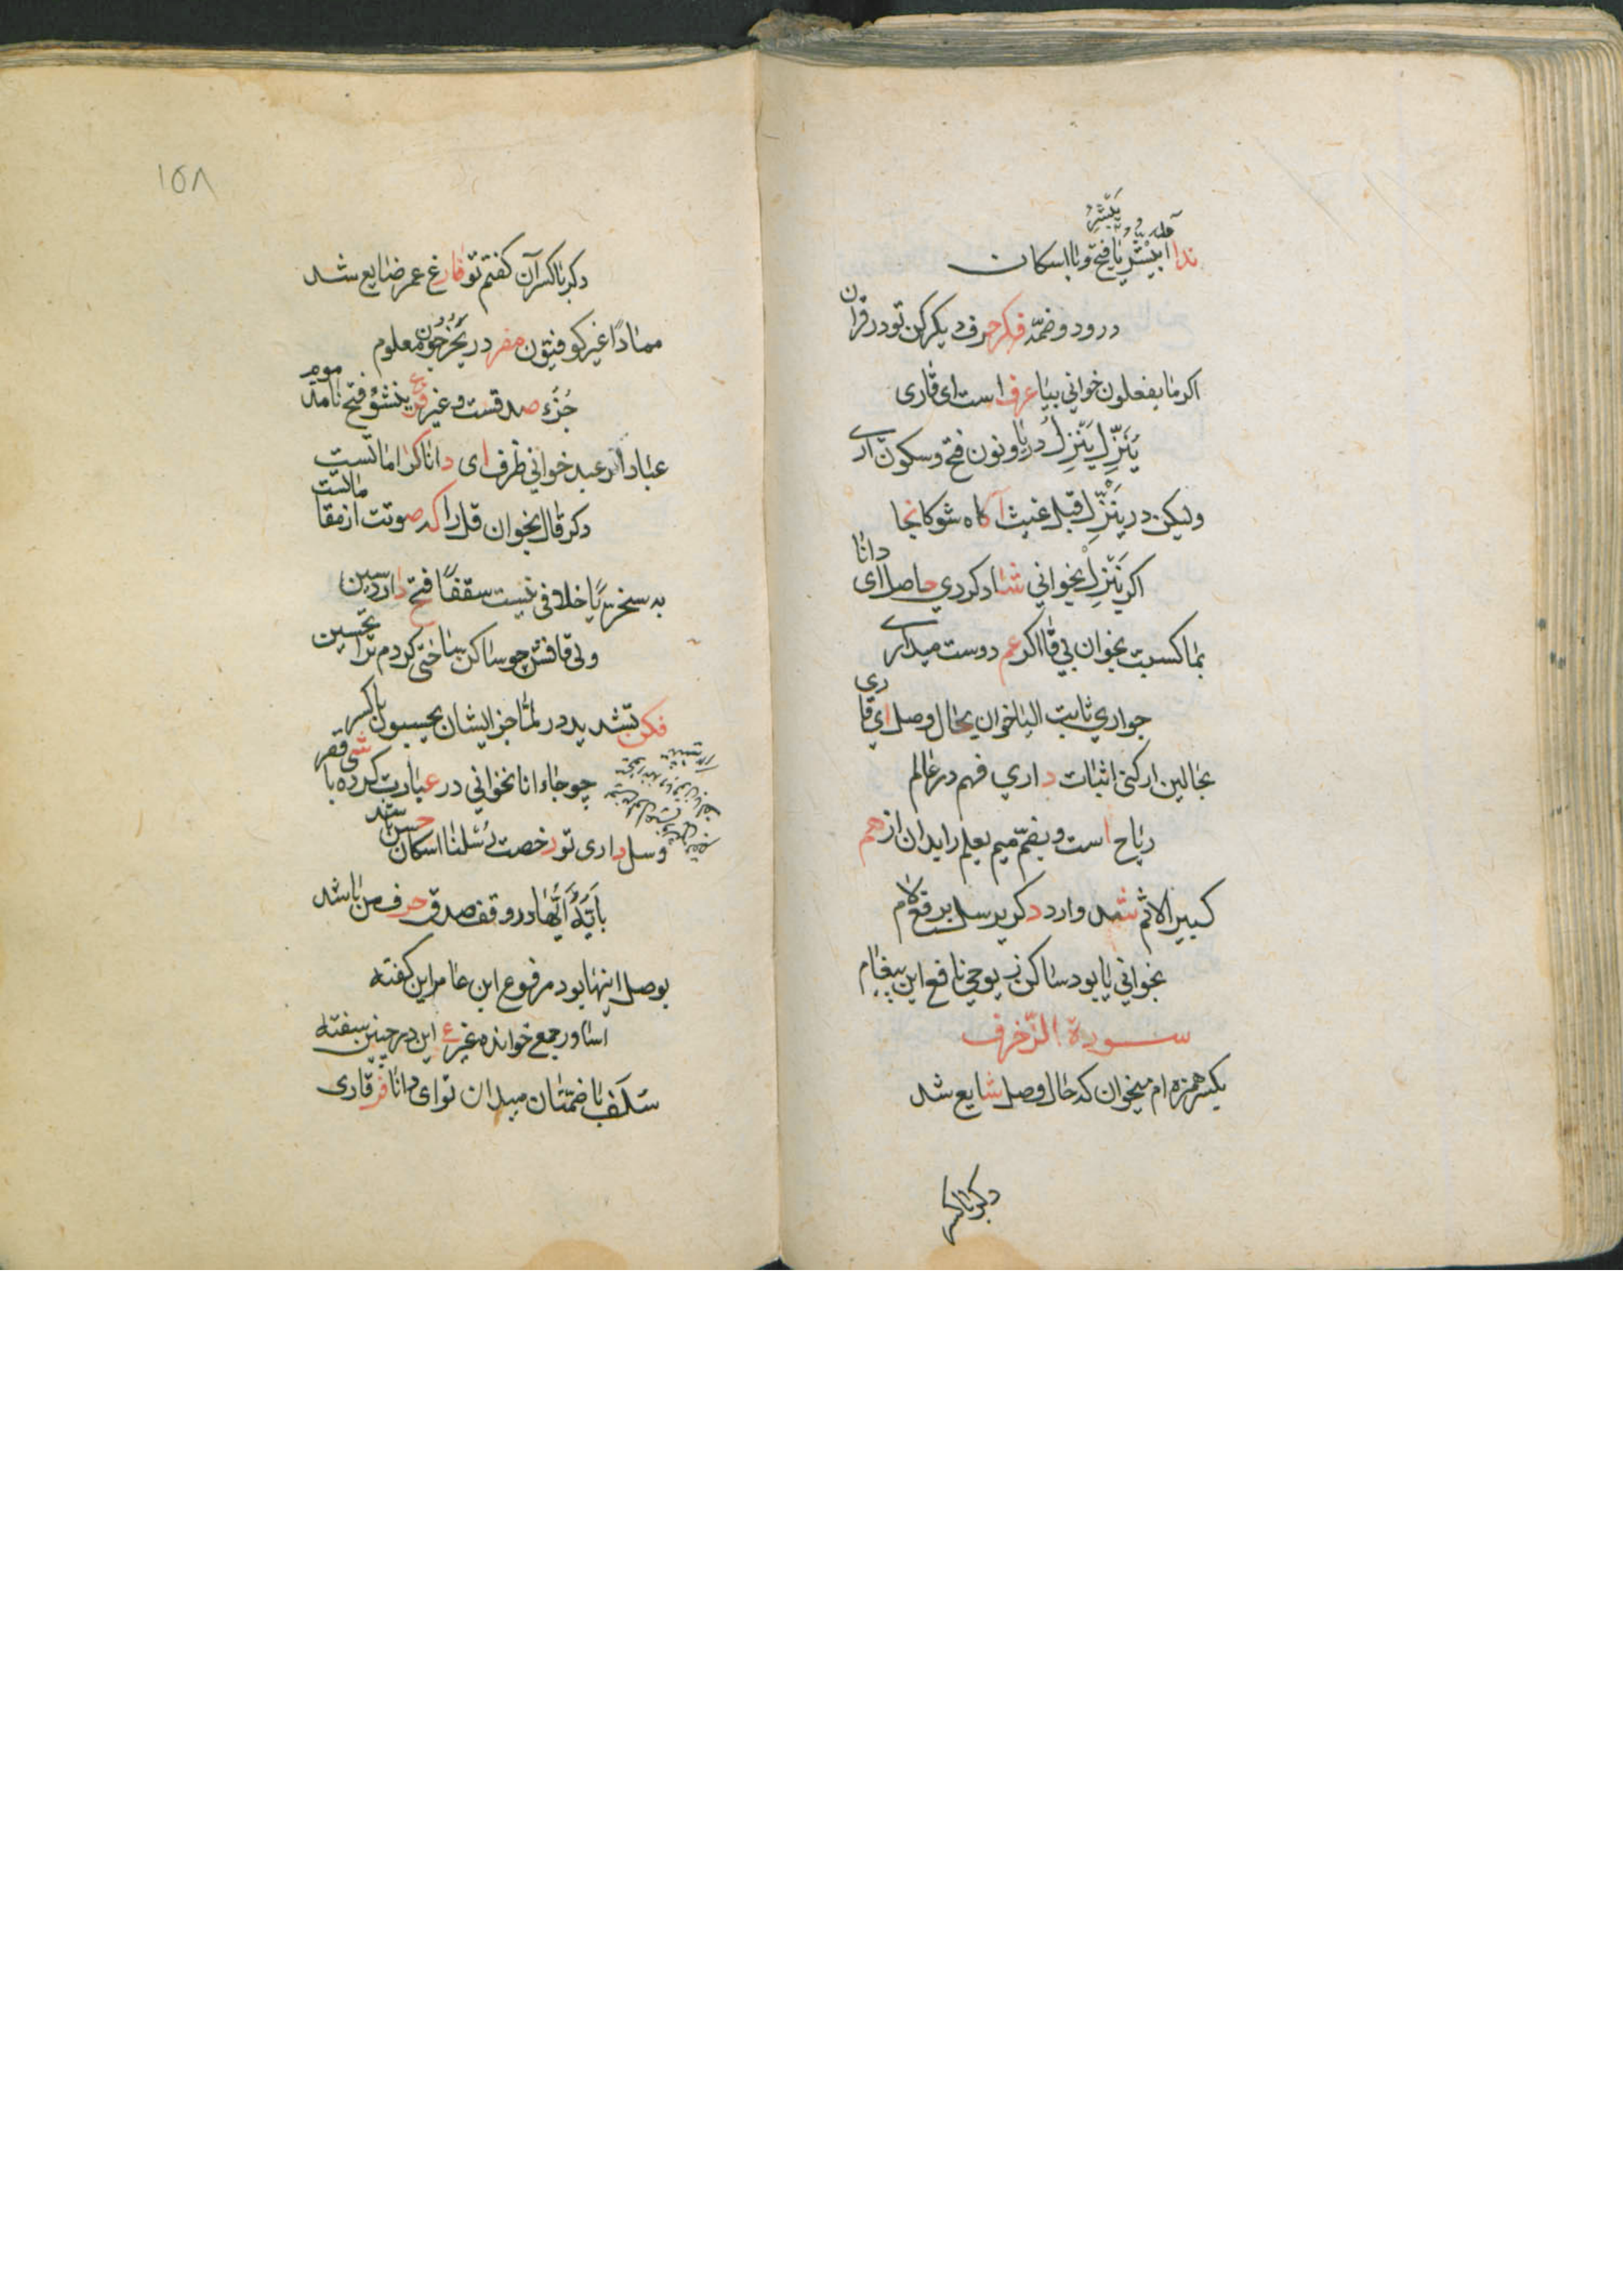 یبشر
ندا یبشر یا فتح و با اسکان
در و دو ضمه فکر حرف دیکر کن تو در قران
اکر ما یفعلون خوانی بیا عرف است ای قاری
ینزل ینزل در یا و نون فتح و سکون آری
ولیکن در ینزل قبل غیث آکاه شو کانجا
اکر ینزل بخوانی شاد کردی حاصل ای دانا
بما کسبت بخوان بی فا اکر عم دوست میداری
جواری ثابت الیا خوان بحال وصل ای قاری
بحالین ار کنی اثبات داری فهم در عالم
ریاح است و بضم میم یعلم را بدان از هم
کبیر الاثم شمل وارد دکر یرسل برفع لام
بخوانی یا بود ساکن ز یوحی نافع این پیغام
سورة الزخرف
بکسر همزه ام میخوان که حال وصل شایع شد
دکر با کسر
١٥٨
دکر با کسر آن کفتم تو فارغ عمر ضایع شد
مهادا غیر کوفیون مفر در یخرجون معلوم
جزء صد قست و غیر ینشؤ فتح نامد موم
عباد ار عبد خوانی ظرف ای دانا کرا مانست
دکر قال بخوان قل را که صوتت از مقامانست
به سخریا خلافی نیست سقفا فتح دارد سین
ولی قافش چو ساکن ساختی کردم ترا تحسین
فکن تشدید در لما جز ایشان یحسبون با کسر
چو جاءانا نخوانی در عبارت کرده باشی قصر
وسل داری تو رخصت رسلنا اسکان حسن باشد
بایه ایها در وقف صدق حرف من باشد
بوصل اینها بود مرفوع ابن عامر این کفته
اساور جمع خوانده غیر ع این در چنین سفته
سلف با ضمتان میدان تو ای دانا فر قاری